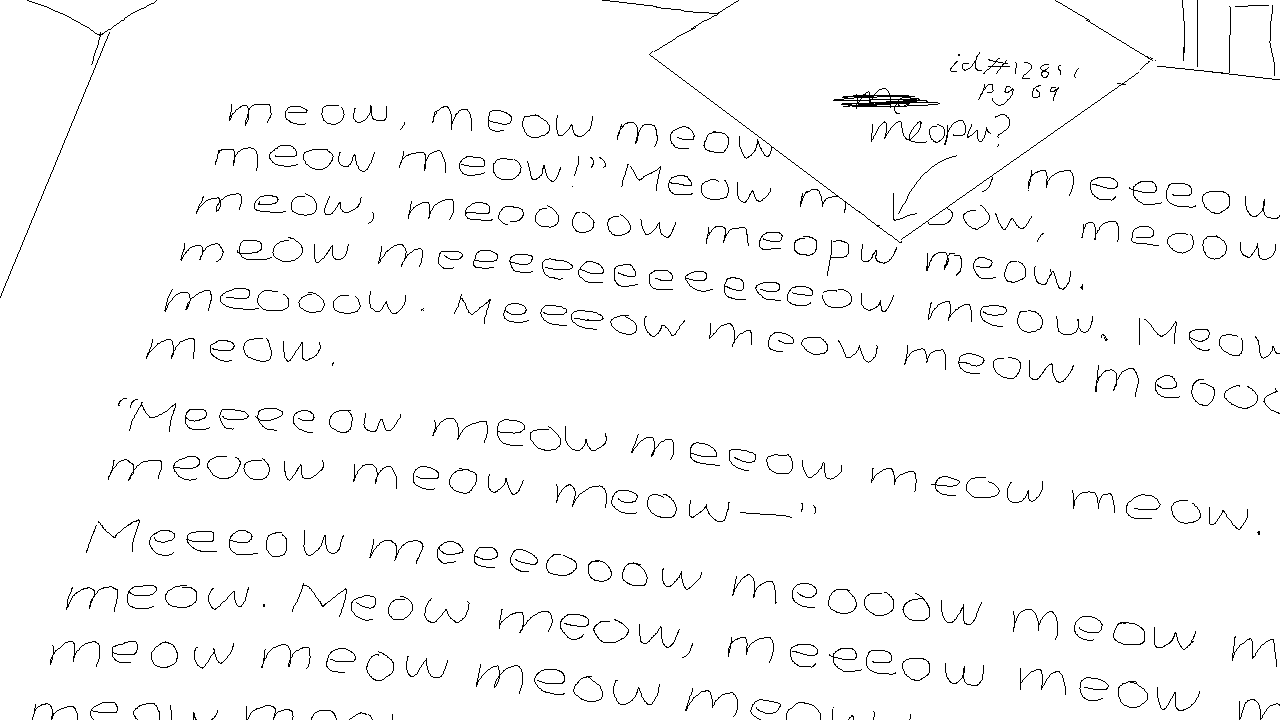 pg 69
meopw?
meow, meow meow , meeeow
meow meow!” Meow m oow, meoow
meow, meoooow meopw meow.
meow meeeeeeeeeeeow meow. Meow
meooow. Meeeow meow meow meooo
meow.
“Meeeeow meow meeow meow meow.
meoow meow meow—”
Meeeow meeeooow meooow meow m
meow. Meow meow, meeeow meow m
meow meow meow meow
meow meow